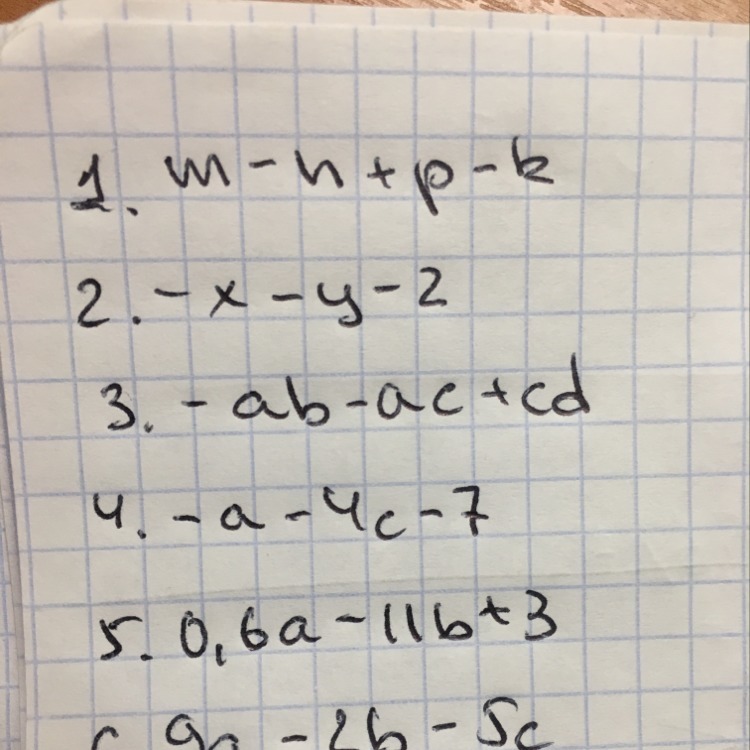 1. m - n + p - k
2. -x - y - 2
3. -ab - ac + cd
4. -a - 4c - 7
5. 0,6a - 11b + 3
9a - 2b - 5c